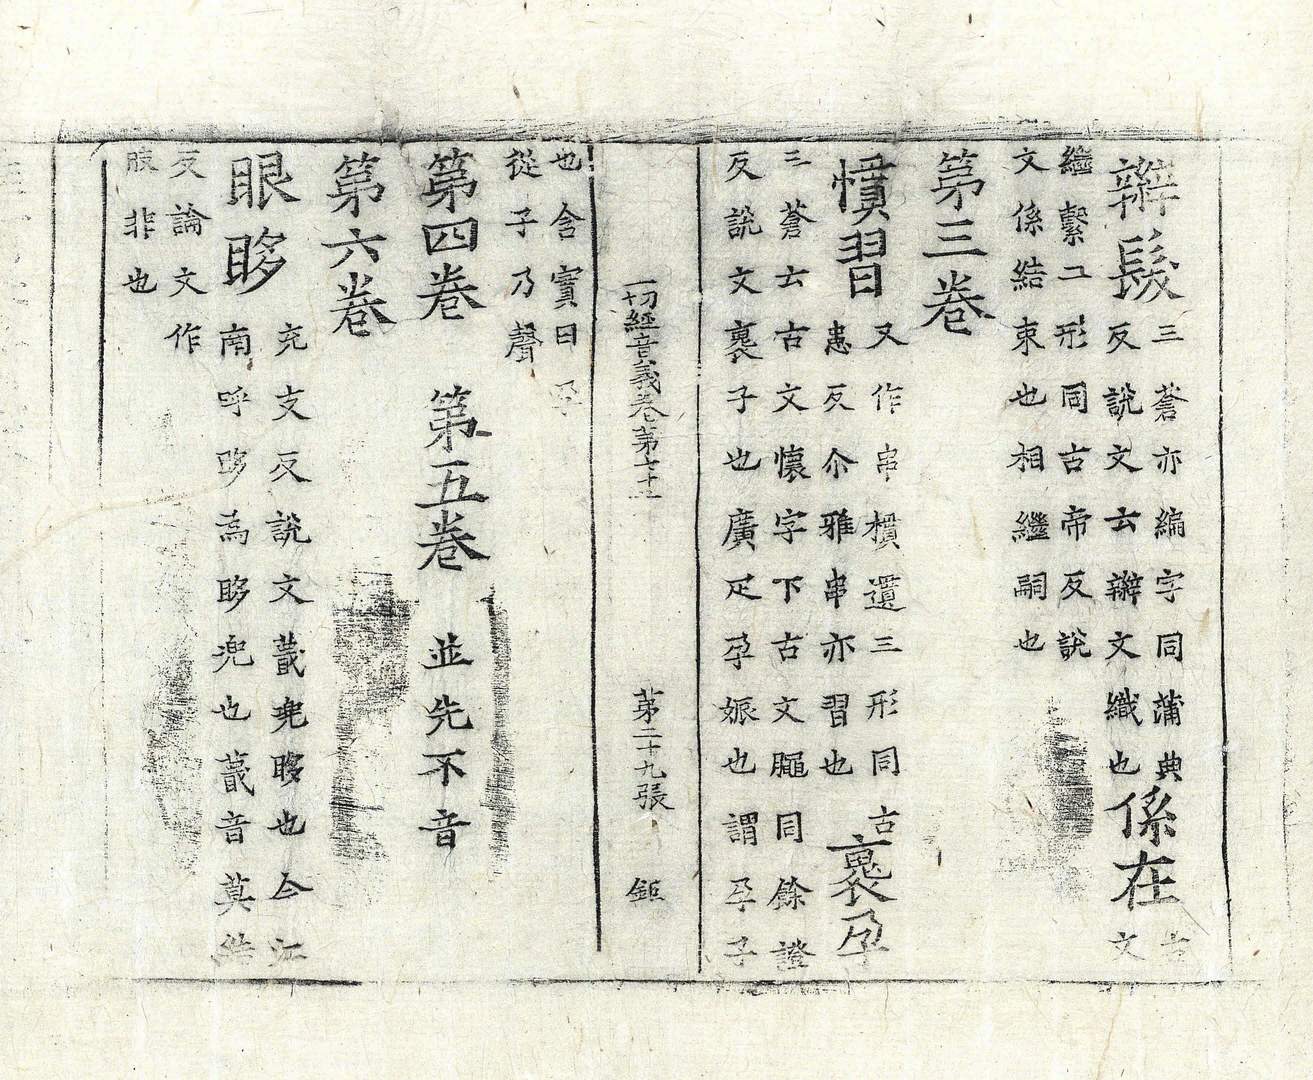 辮髮三蒼亦編字同蒲典
反說文云辮文織也係在古
文
繼繫二形同古帝反說
文係結束也相繼嗣也
第三卷
慣習又作串樌遦三形同古
患反尒雅串亦習也褢孕
三蒼云古文懷字下古文同餘證
反說文褢子也廣疋孕娠也謂孕子
一切經音義卷第七十三 第二十九張 鉅
也含實曰孕
從子乃聲
第四卷 第五卷 並先不音
第六卷
眼眵充支反說文䁾兠眵也今江
南呼眵為眵兠也䁾音莫結
反論文作
𦙁非也